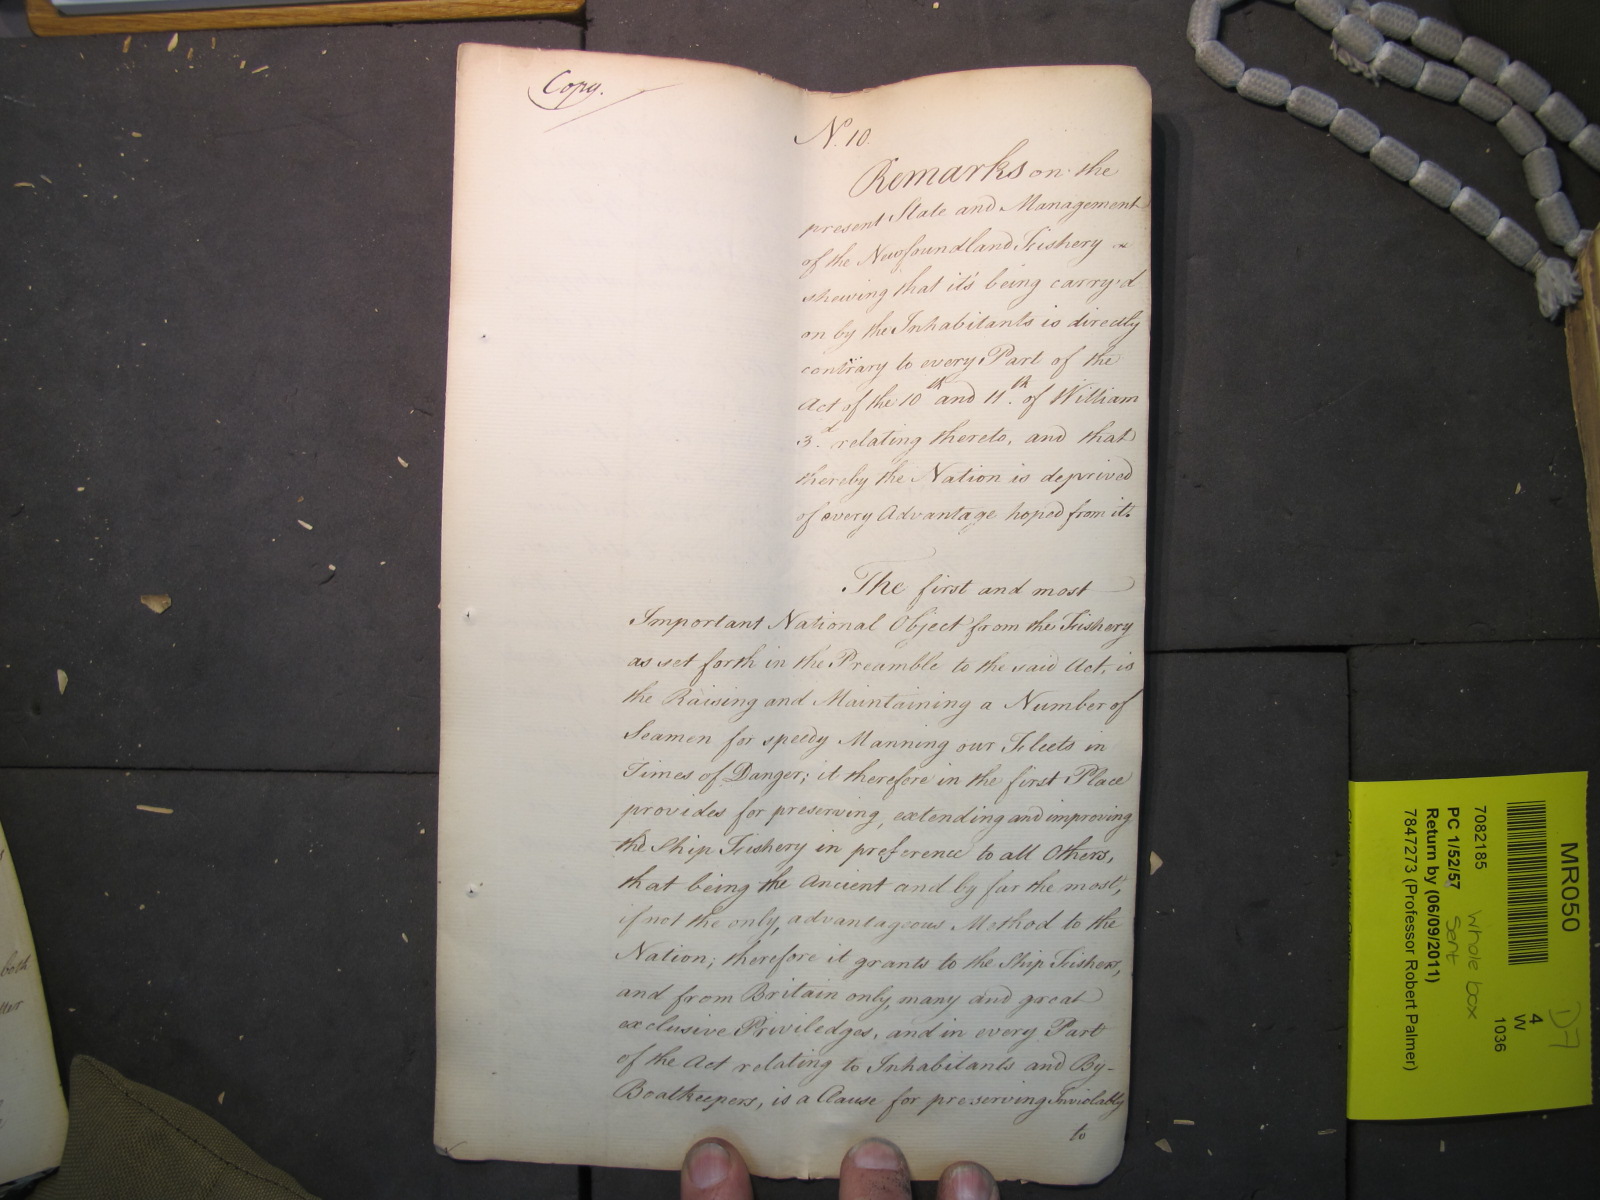 Copy.
No. 10.
Remarks on the
present State and Management
of the Newfoundland Fishery
shewing that it's being carry'd
on by the Inhabitants is directly
contrary to every Part of the
Act of the 10th and 11th. of William
3d. relating thereto, and that
thereby the Nation is deprived
of every Advantage hoped from it.
The first and most
Important National Object from the Fishery
as set forth in the Preamble to the said Act, is
the Raising and Maintaining a Number of
Seamen for speedy Manning our Fleets in
Times of Danger; it therefore in the first Place
provides for preserving, extending and improving
the Ship Fishery in preference to all Others,
that being the Ancient and by far the most,
if not the only, advantageous Method to the
Nation; therefore it grants to the Ship Fishers,
and from Britain only, many and great
exclusive Priviledges, and in every Part
of the Act relating to Inhabitants and By-
Boatkeepers, is a Clause for preserving Inviolably
to
both
MR050
7082185
PC 1/52/57
Return by (06/09/2011)
7847273 (Professor Robert Palmer)
Whole box
Sent
4
W
1036